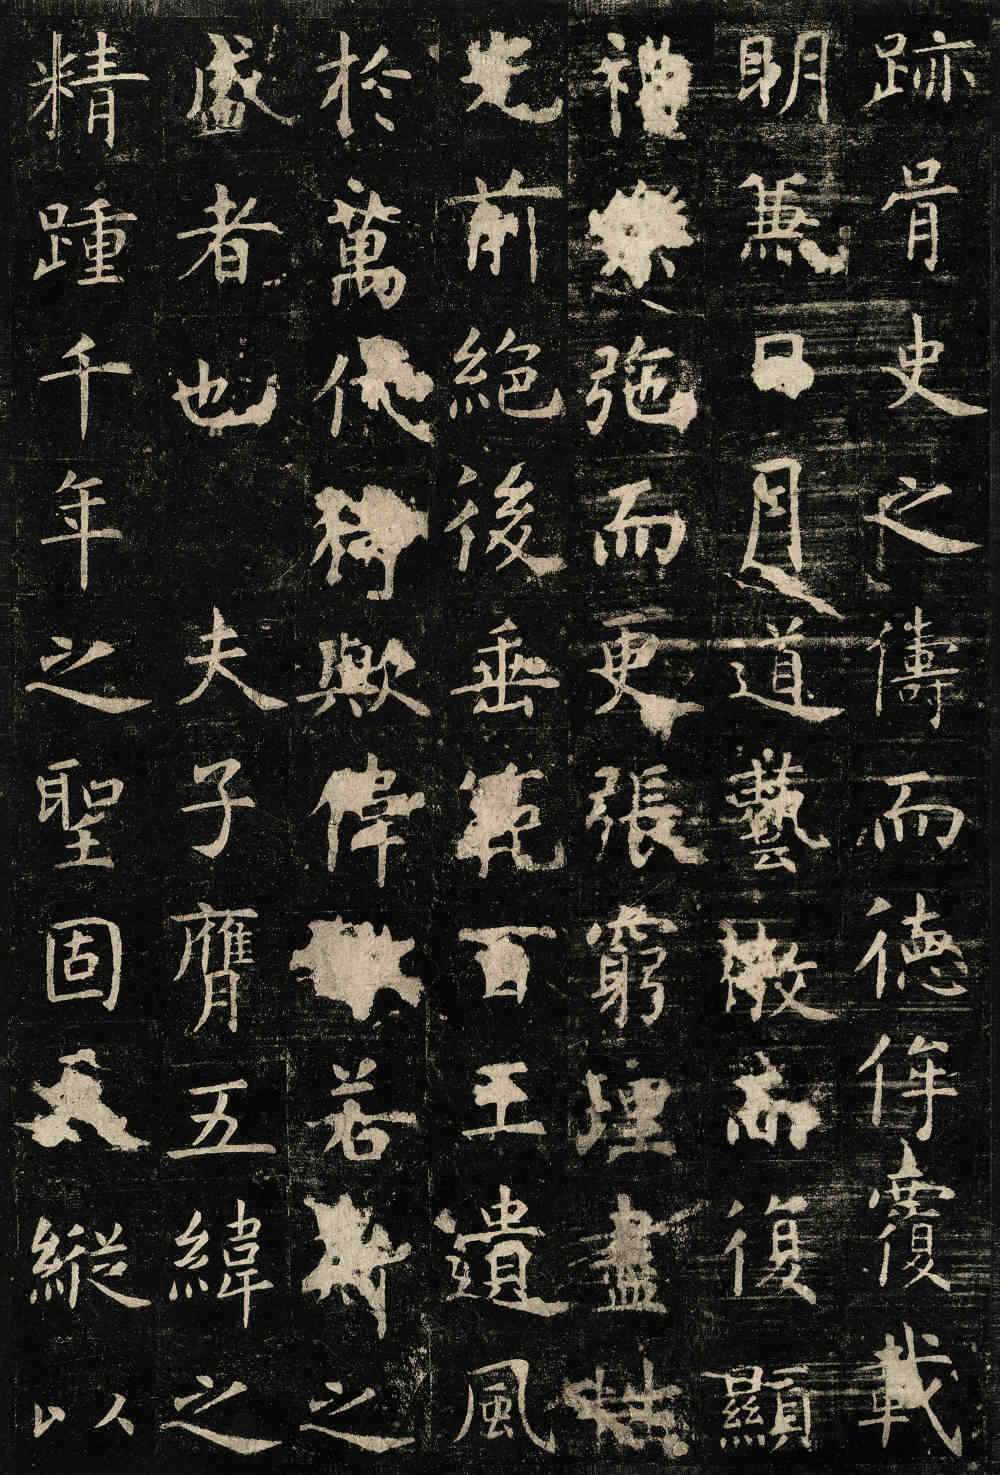 跡胥史之儔而德侔覆載
眀兼日月道藝微而復顯
禮弛而更張窮理盡性
光前絕後垂範百王遺風
於萬代猗歟偉若斯之
盛者也 夫子膺五緯之
精踵千年之聖固天縱以